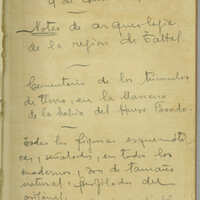 Notas de arqueología
de la región de Taltal.
Cementerio de los túmulos
de tierra, en la llanura
de la bahía del Hueso Parado.
Todas las figuras esquemáti
cas, señaladas, en todos los
son de tamaño
natural,
del
original.